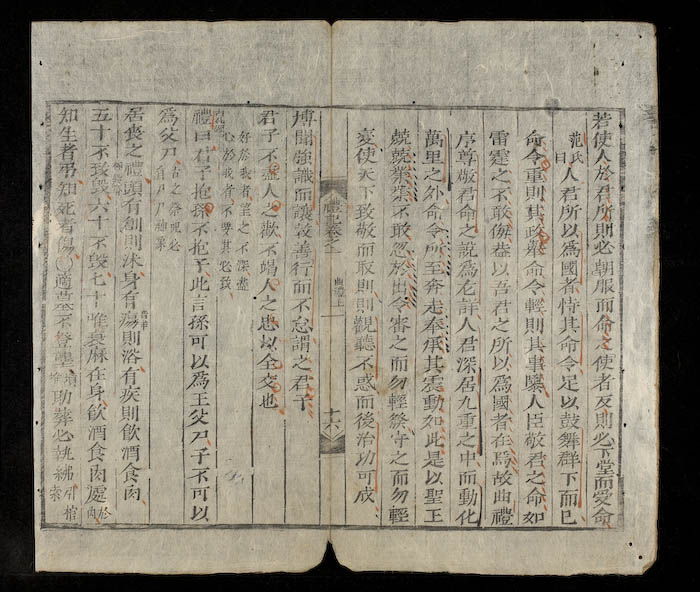 若使人於君所則必朝服而命之使者反則必下堂而受命
范氏曰人君所以爲國者恃其命令足以鼓舞群下而已
命令重則其政舉命令輕則其事隳人臣敬君之命如
雷霆之不敢侮蓋以吾君之所以爲國者在焉故曲禮
序尊敬君命之說爲尤詳人君深居九重之中而動化
萬里之外命令所至奔走奉承其震動如此是以聖王
兢兢業業不敢忽於出令審之而勿輕發守之而勿輕
変使天下致敬而取則則觀聽不惑而後治功可成
禮記卷之一 曲禮上
十六
博聞強識而讓敦善行而不怠謂之君子
君子不盡人之歡不竭人之忠以全交也
好於我者望之不深盡
心於我者不要其必致
禮曰君子抱孫不抱子此言孫可以爲王父尸子不可以
爲父尸
古之祭祀必
有尸尸神象
居喪之禮頭有創則沐身有瘍則浴有疾則飲酒食肉
五十不致毀六十不毀七十惟衰麻在身飲酒食肉處於內
知生者弔知死者傷〇適墓不登壟助葬必執紼引棺索